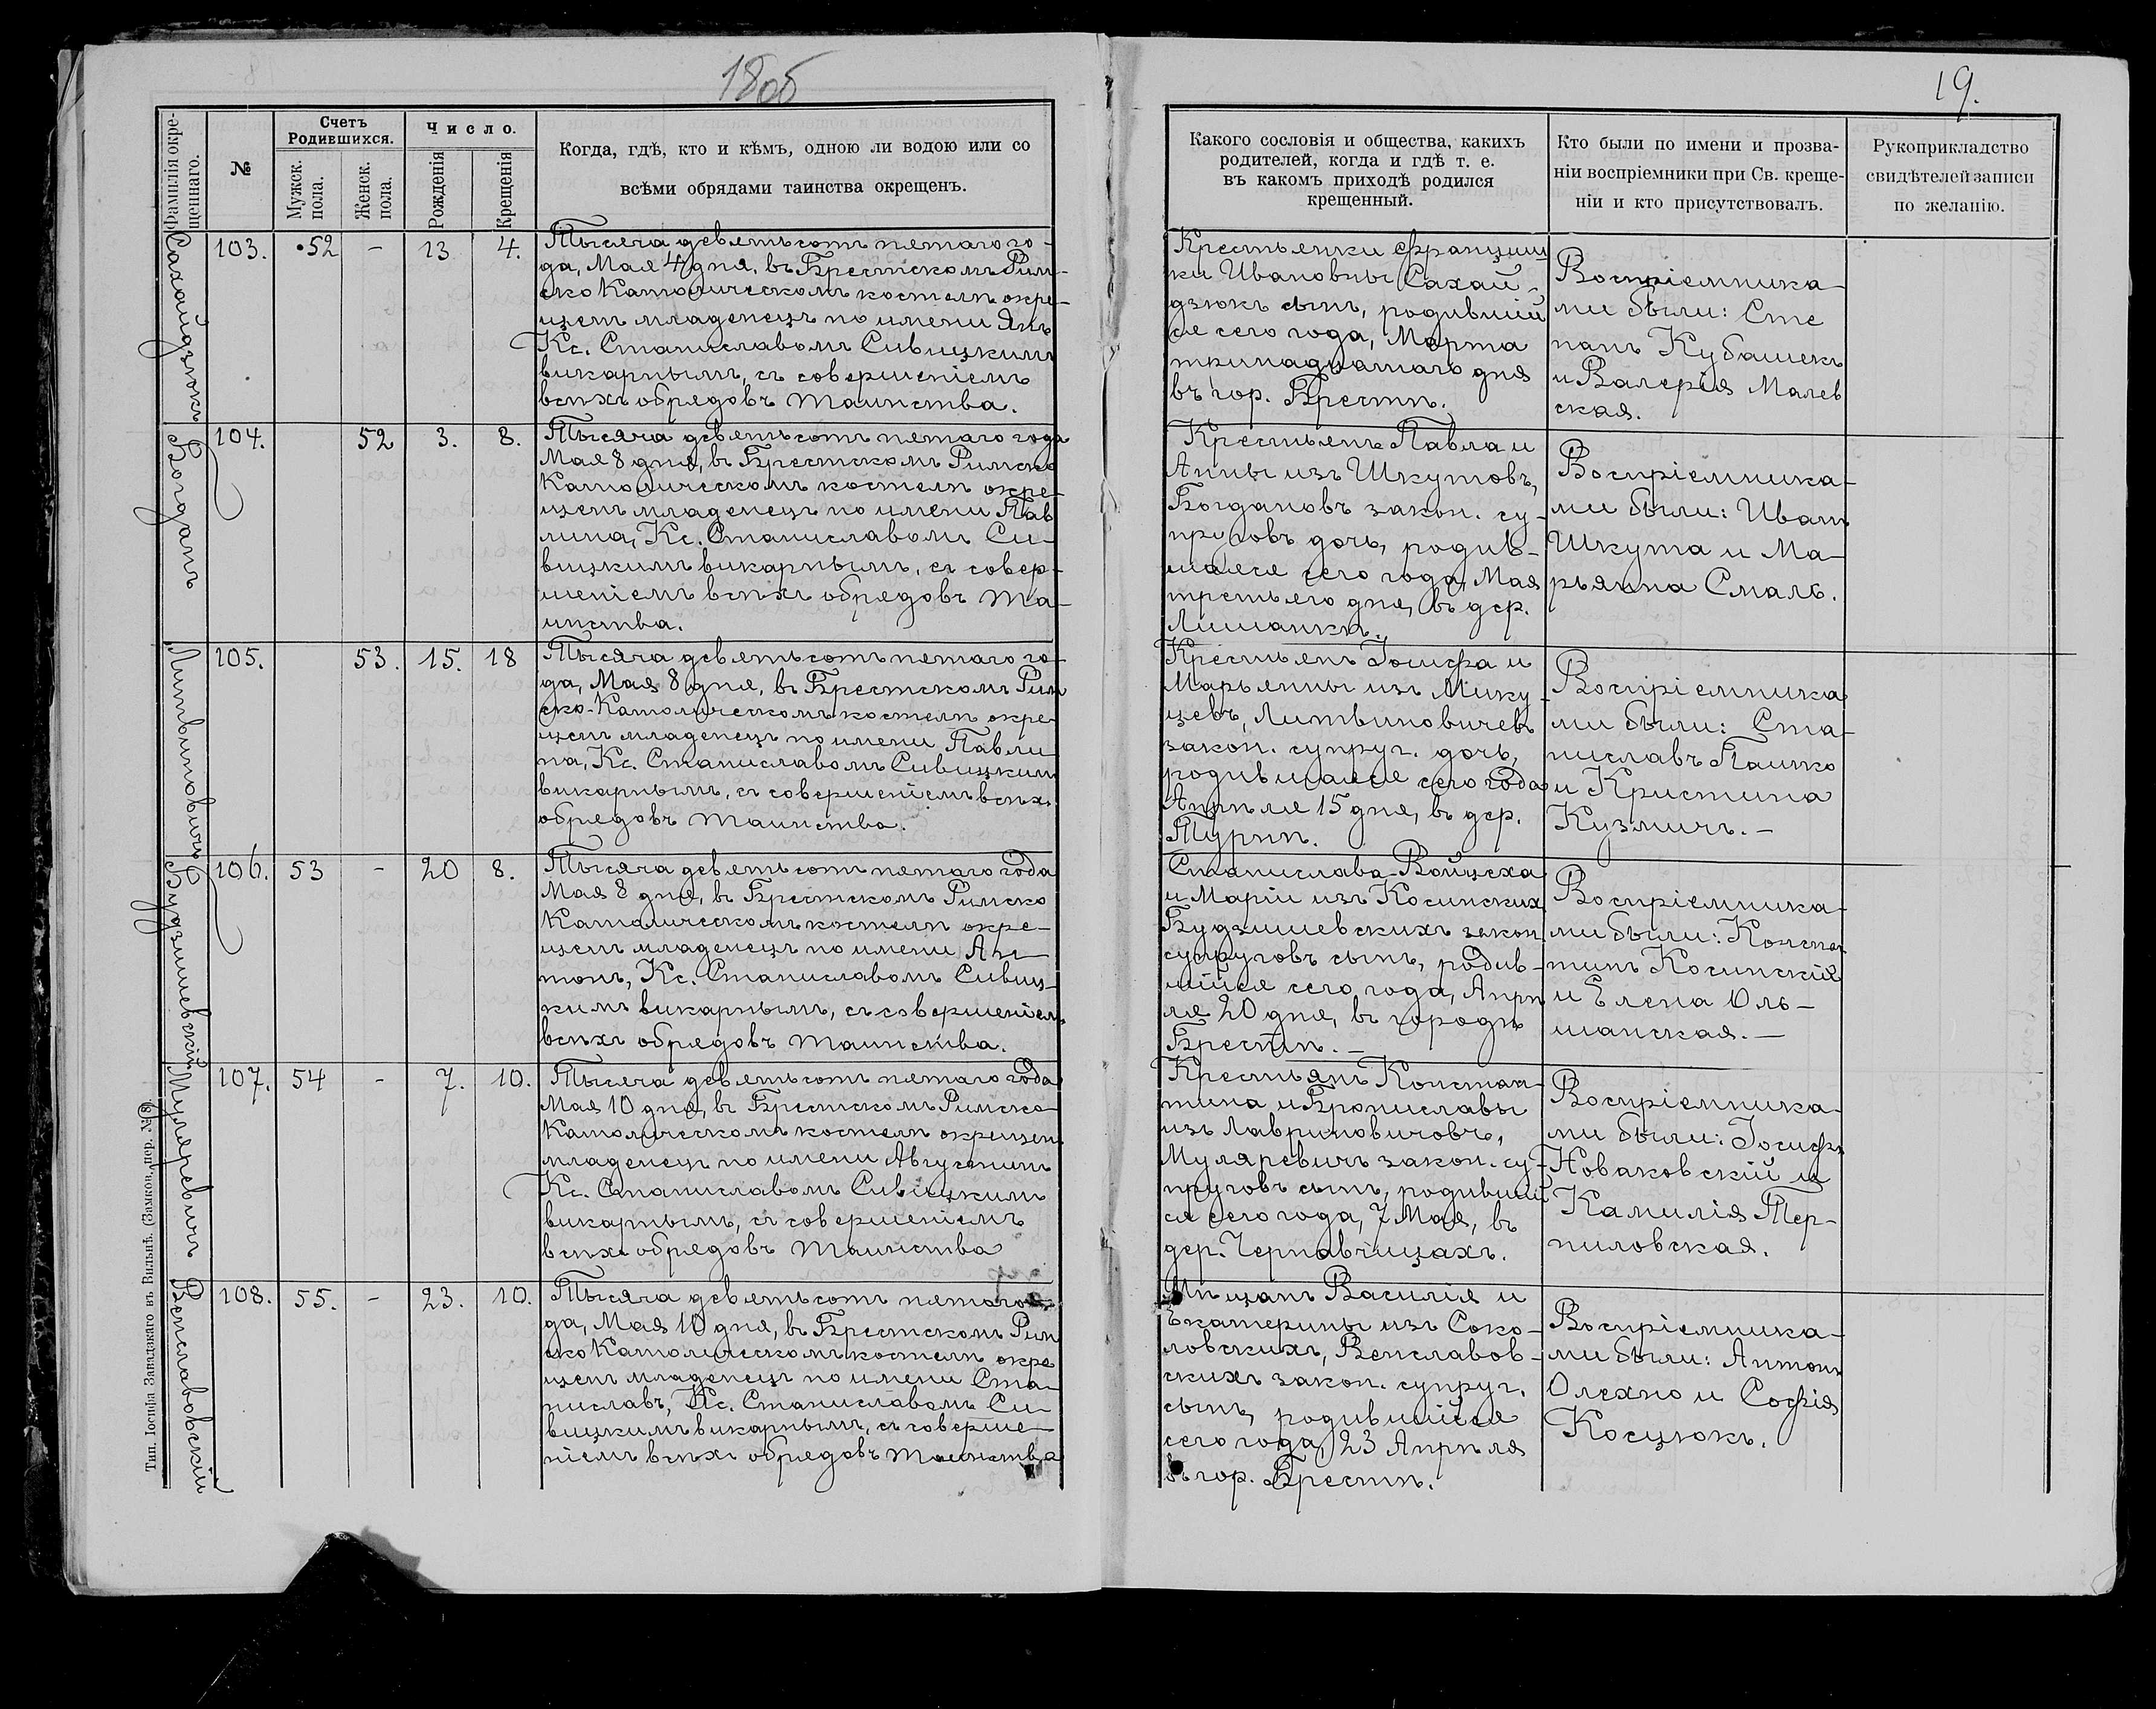 18об
19.
Фамилія окре-
щеннаго.
№
Счетъ
Родившихся.
Мужск.
пола.
Женск.
пола.
Число.
Рожденія
Крещенія
Когда, гдѣ, кто и кѣмъ, одною ли водою или со
всѣми обрядами таинства окрещенъ.
Какого сословія и общества, какихъ
родителей, когда и гдѣ т. е.
въ какомъ приходѣ родился
крещенный.
Кто были по имени и прозва-
ніи воспріемники при Св. креще-
ніи и кто присутствовалъ.
Рукоприкладство
свидѣтелей записи
по желанію.
Сахайдзюкъ
103. 52 - 13 4.
Тысяча девятьсотъ пятаго го-
да, Мая 4 дня, въ Брестскомъ Рим-
ско Католическомъ костелѣ окре-
щенъ младенецъ по имени Янъ
Кс. Станиславомъ Сивицкимъ
викарнымъ, съ совершеніемъ
всѣхъ обрядовъ таинства.
Крестьянки Францишки
ки Ивановны Сахай-
дзюкъ сынъ, родившій
ся сего года, Марта
тринадцатаго дня
въ гор. Брестѣ.
Воспріемника-
ми были: Сте
панъ Кубашекъ
и Валерія Малев
ская.
Богданъ
104. 52 3. 8.
Тысяча девятьсотъ пятаго года
Мая 8 дня, въ Брестскомъ Римско
Католическомъ костелѣ окре-
щенъ младенецъ по имени Пав
лина, Кс. Станиславомъ Си-
вицкимъ викарнымъ, съ совер-
шеніемъ всѣхъ обрядовъ та-
инства.
Крестьянъ Павла и
Анны изъ Шкутовъ,
Богдановъ закон. су-
пруговъ дочь, родив-
шаяся сего года, Мая
третьяго дня, въ дер.
Воспріемника-
ми были: Иванъ
Шкута и Ма-
рьянна Смаль.
Литвиновичъ
105. 53. 15. 18
Тысяча девятьсотъ пятаго го-
да, Мая 8 дня, въ Брестскомъ Рим
ско-Католическомъ костелѣ окре-
щенъ младенецъ по имени Павли
на, Кс. Станиславомъ Сивицкимъ
викарнымъ, съ совершеніемъ всѣхъ
обрядовъ таинства.
Крестьянъ Іосифа и
Марьянны изъ Мику-
цевъ, Литвиновичей
закон. супруг. дочь,
родившаяся сего года
Апрѣля 15 дня, въ дер.
Турнѣ.
Воспріемника
ми были: Ста-
ниславъ Пашко
и Кристина
Кузмичъ. -
Будзишевскій
106. 53 - 20 8.
Тысяча девятьсотъ пятаго года
Мая 8 дня, въ Брестскомъ Римско
Католическомъ костелѣ окре-
щенъ младенецъ по имени Ан-
тонъ, Кс. Станиславомъ Сивиц-
кимъ викарнымъ, съ совершеніемъ
всѣхъ обрядовъ таинства.
Станислава-Войцеха
и Маріи изъ Косинскихъ
Будзишевскихъ закон.
супруговъ сынъ, родив-
шійся сего года, Апрѣ
ля 20 дня, въ городѣ
Брестѣ. -
Воспріемника-
ми были: Констан
тинъ Косинскій
и Елена Оль-
шанская. -
Муляревичъ
107. 54 - 7. 10.
Тысяча девятьсотъ пятаго года
Мая 10 дня, въ Брестскомъ Римско-
Католическомъ костелѣ окрещенъ
младенецъ по имени Августинъ
Кс. Станиславомъ Сивицкимъ
викарнымъ, съ совершеніемъ
всѣхъ обрядовъ таинства
Крестьянъ Констан-
тина и Брониславы
изъ Лавриновичовъ,
Муляревичъ закон. су-
пруговъ сынъ, родившій
ся сего года, 7 Мая, въ
дер. Чернавчицахъ.
Воспріемника-
ми были: Іосифъ
Новаковскій и
Камилія Тер-
пиловская.
Венславовскій
108. 55. - 23. 10.
Тысяча девятьсотъ пятаго го-
да, Мая 10 дня, въ Брестскомъ Рим
ско Католическомъ костелѣ окре
щенъ младенецъ по имени Ста-
ниславъ, Кс. Станиславомъ Си-
вицкимъ викарнымъ, съ соверше-
ніемъ всѣхъ обрядовъ таинства
Мѣщанъ Василія и
Екатерины изъ Соко-
ловскихъ, Венславов-
скихъ закон. супруг.
сынъ, родившійся
сего года, 23 Апрѣля
въ гор. Брестѣ.
Воспріемника-
ми были: Антонъ
Олехно и Софія
Косцюкъ.
Тип. Іосифа Завадзкаго въ Вильнѣ. (Замков. пер. № 8).